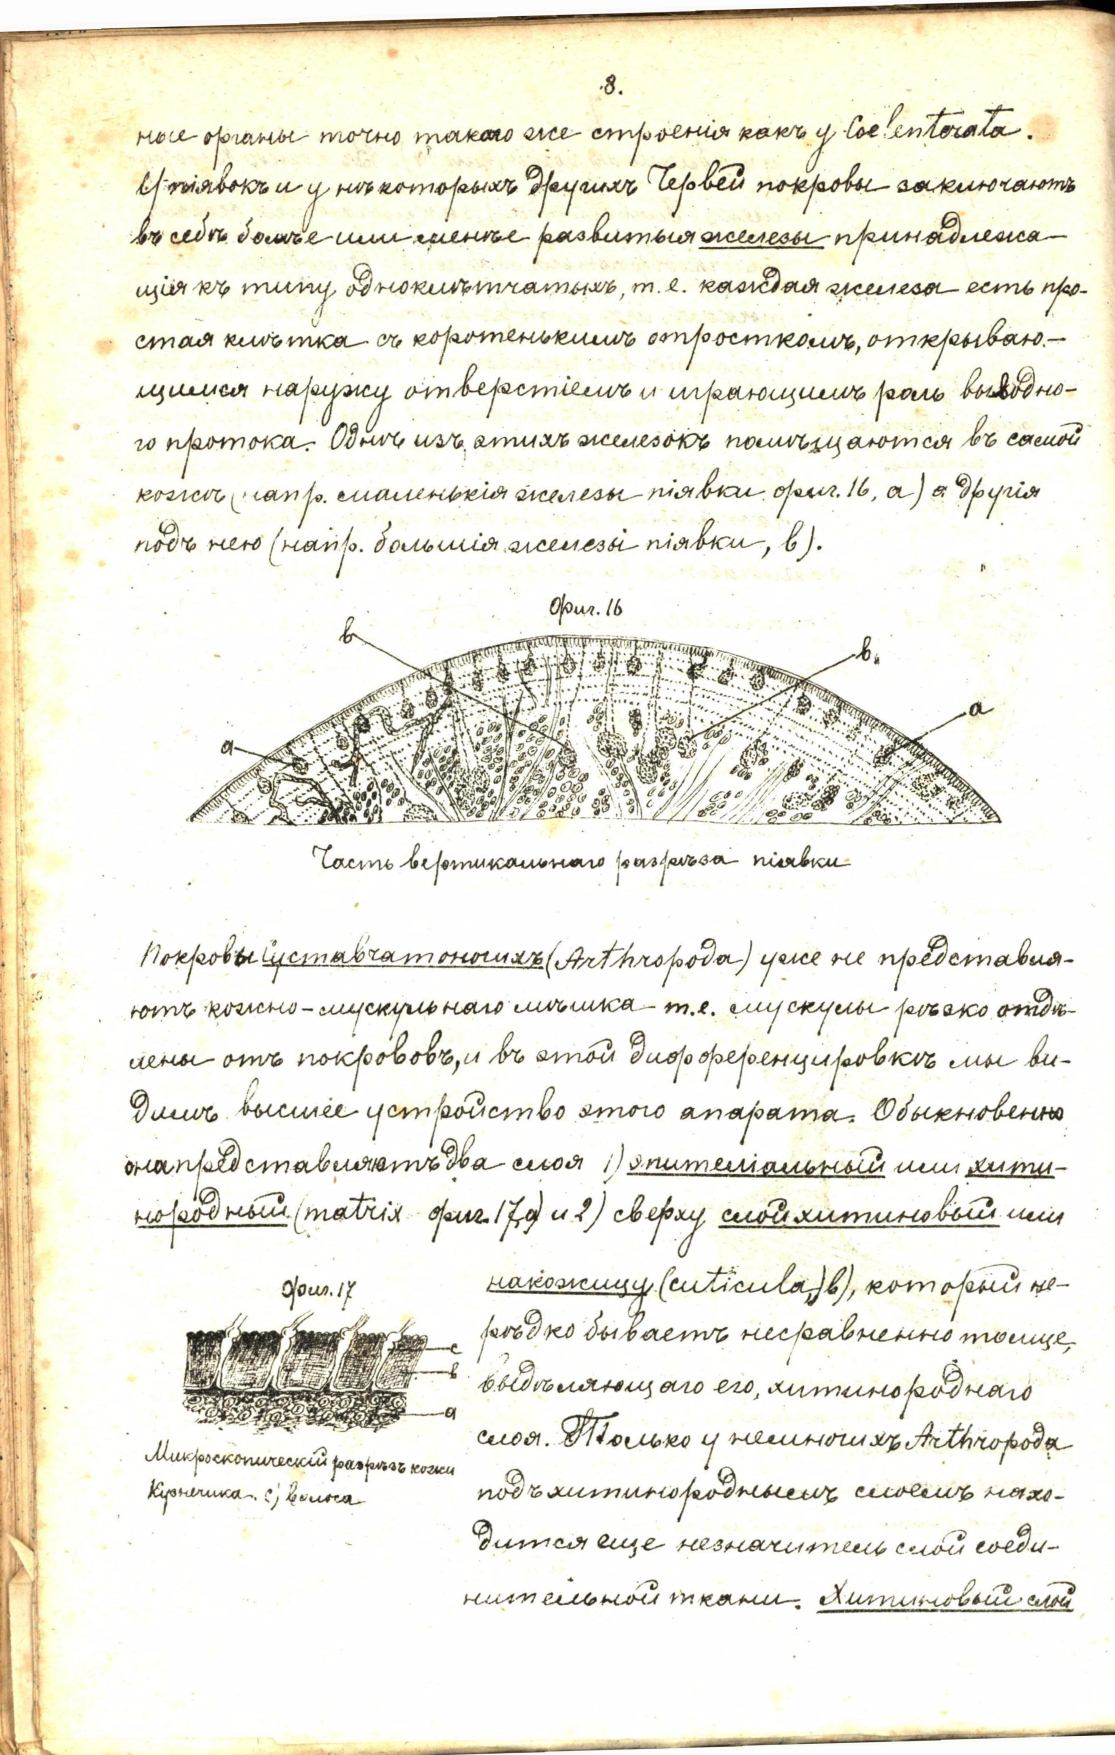 8.
ные органы точно такого же строенія какъ у Coelenterata.
У піявокъ и у нѣкоторыхъ другихъ Червей покровы заключаютъ
въ себѣ болѣе или менѣе развитыя железы принадлежа-
щія къ типу одноклѣтчатыхъ, т.е. каждая железа есть про-
стая клѣтка съ коротенькимъ отросткомъ, открываю-
щимся наружу отверстіемъ и играющимъ роль выводно-
го протока. Однѣ изъ этихъ железокъ помѣщаются въ самой
кожѣ (напр. маленькія железы піявки фиг. 16, а) а другія
подъ нею (напр. большія железы піявки, в).
Фиг. 16
в
в.
а
а
Часть вертикальнаго разрѣза піявки
Покровы Суставчатоногихъ (Arthropoda) уже не представля-
ютъ кожно-мускульнаго мѣшка т.е. мускулы рѣзко отдѣ-
лены отъ покрововъ, и въ этой дифференцировкѣ мы ви-
димъ высшее устройство этого апарата. Обыкновенно
она представляетъ два слоя 1) эпителіальный или хити-
нородный (matrix фиг. 17, а) и 2) сверху слой хитиновый или
накожицу (cuticula, в), который не-
рѣдко бываетъ несравненно толще,
выдѣляющаго его, хитинороднаго
слоя. Только у немногихъ Arthropoda
подъ хитинороднымъ слоемъ нахо-
дится еще незначитель слой соеди-
нительной ткани. Хитиновый слой
Фиг. 17
с
в
а
Микроскопическій разрѣзъ кожи
Кузнечика. с) волоса